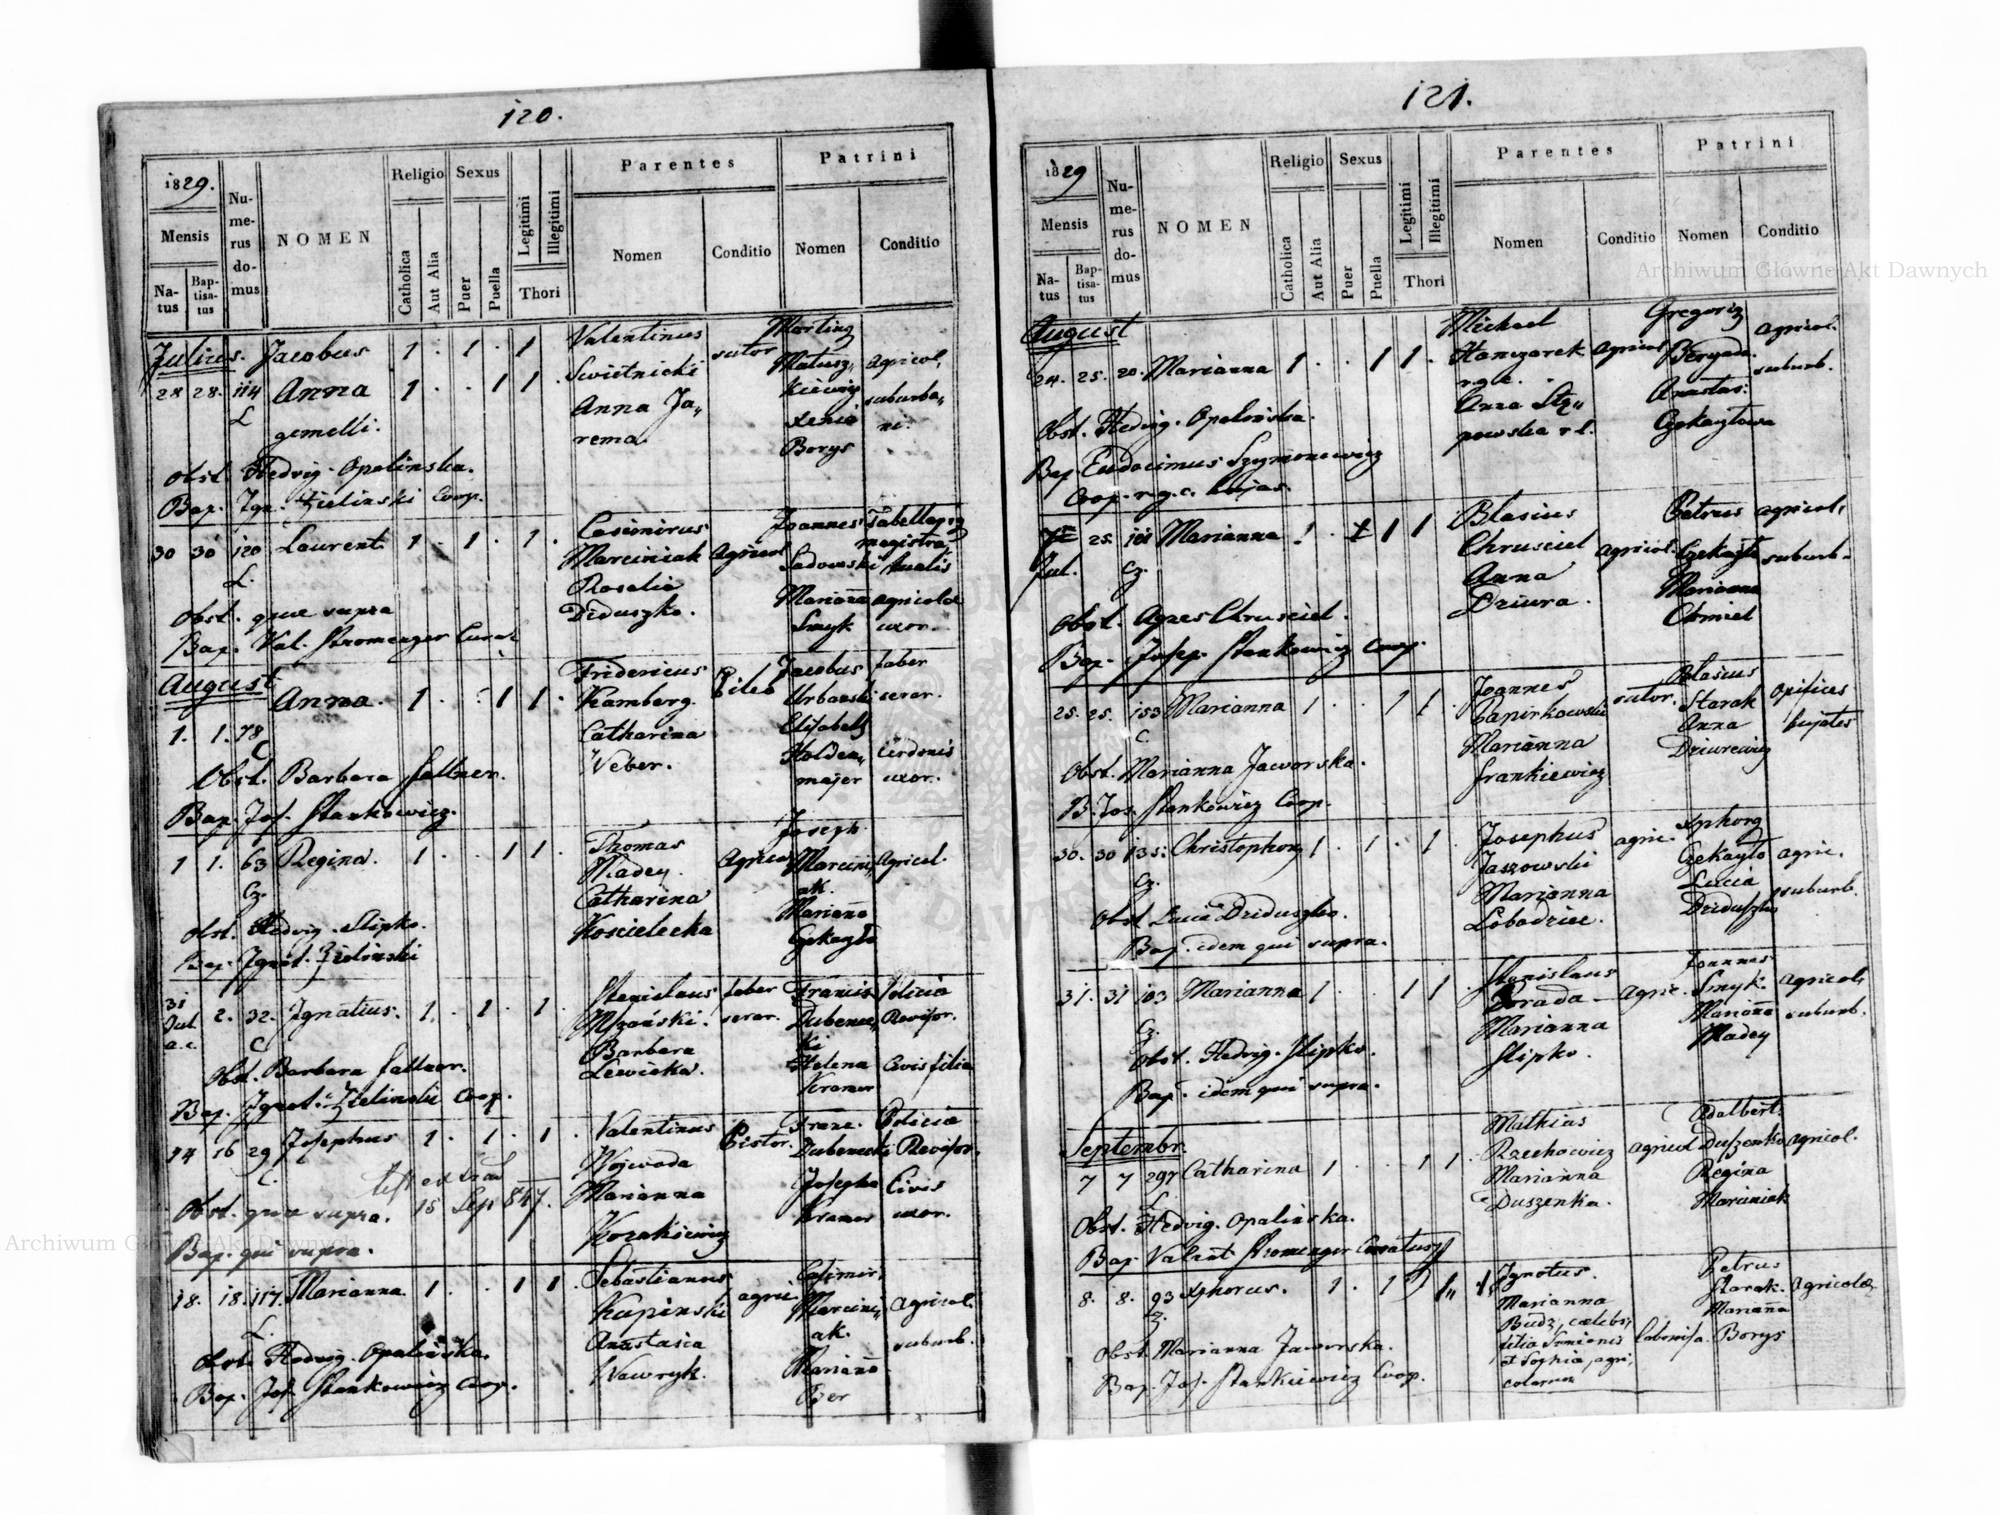 120.
1829.
Mensis
Na-
tus
Bap-
tisa-
tus
Nu-
me-
rus
do-
mus
NOMEN
Religio
Catholica
Aut Alia
Sexus
Puer
Puella
Legitimi
Illegitimi
Thori
Parentes
Nomen
Conditio
Patrini
Nomen
Conditio
Julius. Jacobus 1 . 1 . 1
28 28. 114 Anna 1 . . 1 1 .
L gemelli.
Valentinus
Swietnicki
Anna Ja„
rema.
sutor
Matusz„
Xenia
Borys
agricol.
suburba„
ni.
Obst. Hedvig. Opalinska.
Bap. Ign. Zielinski Coop.
30 30 120 Laurent. 1 . 1 . 1 .
L.
Casimirus
Marciniak
Rosalia
Diduszko.
Agricol
Joannes
Sadowski
Mariana
Smyk
magistra„
tualis
agricolae
uxor.
Obst. quae supra
Bap. Val. Stromenger Curat
August
Anna. 1 . . 1 1 .
1. 1. 78
C
Fridericus
Kamberg.
Catharina
Weber.
Pileo
Jacobus
Urbanski
Elisabeth
Holden„
majer
faber
serar.
Cerdonis
uxor.
Obst. Barbara Fallner.
Bap. Jos. Stankowicz.
1 1. 63 Regina. 1 . . 1 1 .
Cz.
Thomas
Madey.
Catharina
Koscielecka
Agricol
Joseph.
Marcini„
ak.
Mariana
Czekayło
Agricol.
Obst. Hedvig. Slipko.
Bap. Ignat. Zielinski
31
Jul. 2. 32. Ignatius. 1. . 1 . 1 .
a.c. C
Stanislaus
Barbara
Lewicka.
faber
serar.
Francis.
Dubenec„
ki
Helena
Kramer
Policiae
Revisor.
Civis filia
Obst. Barbara Fallner.
Bap. Ignat. Zielinski Coop.
14 16 29 Josephus 1 . 1 . 1 .
C.
15 Sep 847.
Valentinus
Wojewoda
Marianna
Kozakiewicz
Pistor.
Franc.
Dubenecki
Josepha
Kramer
Policiae
Revisor.
Civis
uxor.
Obst. quae supra.
Bap. qui supra.
18. 18. 117. Marianna 1 . . 1 1 .
L.
Sebastianus
Kupinski
Anastasia
Wawryk.
agric.
Casimir.
Marcini„
ak.
Mariana
agricol.
suburb.
Obst. Hedvig. Opalinska.
Bap. Jos. Stankowicz Coop.
121.
1829
Mensis
Na-
tus
Bap-
tisa-
tus
Nu-
me-
rus
do-
mus
NOMEN
Religio
Catholica
Aut Alia
Sexus
Puer
Puella
Legitimi
Illegitimi
Thori
Parentes
Nomen
Conditio
Patrini
Nomen
Conditio
August
24. 25. 20. Marianna 1 . . 1 1 .
Michael
Hanczarek
r.g.c.
Anna Stę„
powska r.l.
agricol
Gregorig
Anastas.
Czekayłowa
agricol.
suburb.
Obst. Hedvig. Opalinska.
Bap. Eudocimus Szymonowicz
Coop. r.g.c. hujas.
25. 101 Marianna 1 . 1 1
Jul. Cz.
Blasius
Chrusciel
Anna
Dziura.
agricol.
Petrus
Czekayło
Marianna
Chmiel
agricol.
suburb.
Obst. Agnes Chrusciel.
Bap. Josep. Stankowicz Coop.
25. 25. 153 Marianna 1 . . 1 1 .
C
Joannes
Papirkowski
Marianna
Frankiewicz
sutor.
Blasius
Starak
Anna
Dziurewicz
Opifices
hujates
Obst. Marianna Jaworska.
B. Jos. Stankowicz Coop.
30. 30 135. Christophorg 1 . 1 . 1 .
Cz.
Josephus
Jaszowski
Marianna
Lobodziec.
agric.
Xphorg
Czekayło
Lucia
Dziduszko
agric.
suburb.
Obst Lucia Dziduszko.
Bap. idem qui supra.
31. 31 103 Marianna 1 . . 1 1 .
Cz.
Stanislaus
Porada
Marianna
Slipko.
agric.
Joannes
Smyk.
Mariana
Madey
agricol.
suburb.
Obst. Hedvig. Slipko.
Bap. idem qui supra.
Septembr.
7 7 297 Catharina 1 . . 1 1 .
L
Mathias
Rzechowicz
Marianna
Duszenka.
agricol
Adalbert.
Duszenko
Regina
Marciniak
agricol.
Obst. Hedvig. Opalinska.
Bap. Valent. Stromenger Curatus
8. 8. 93 Xphorus. 1 . 1
Ignotus.
Marianna
Budz, caelebs,
filia Simionis
et Sophia, agri„
colarum
Petrus
Starak.
Mariana
Borys
Agricolae
Obst. Marianna Jaworska.
Bap. Jos. Stankiewicz Coop.
Archiwum Główne Akt Dawnych
Archiwum Główne Akt Dawnych